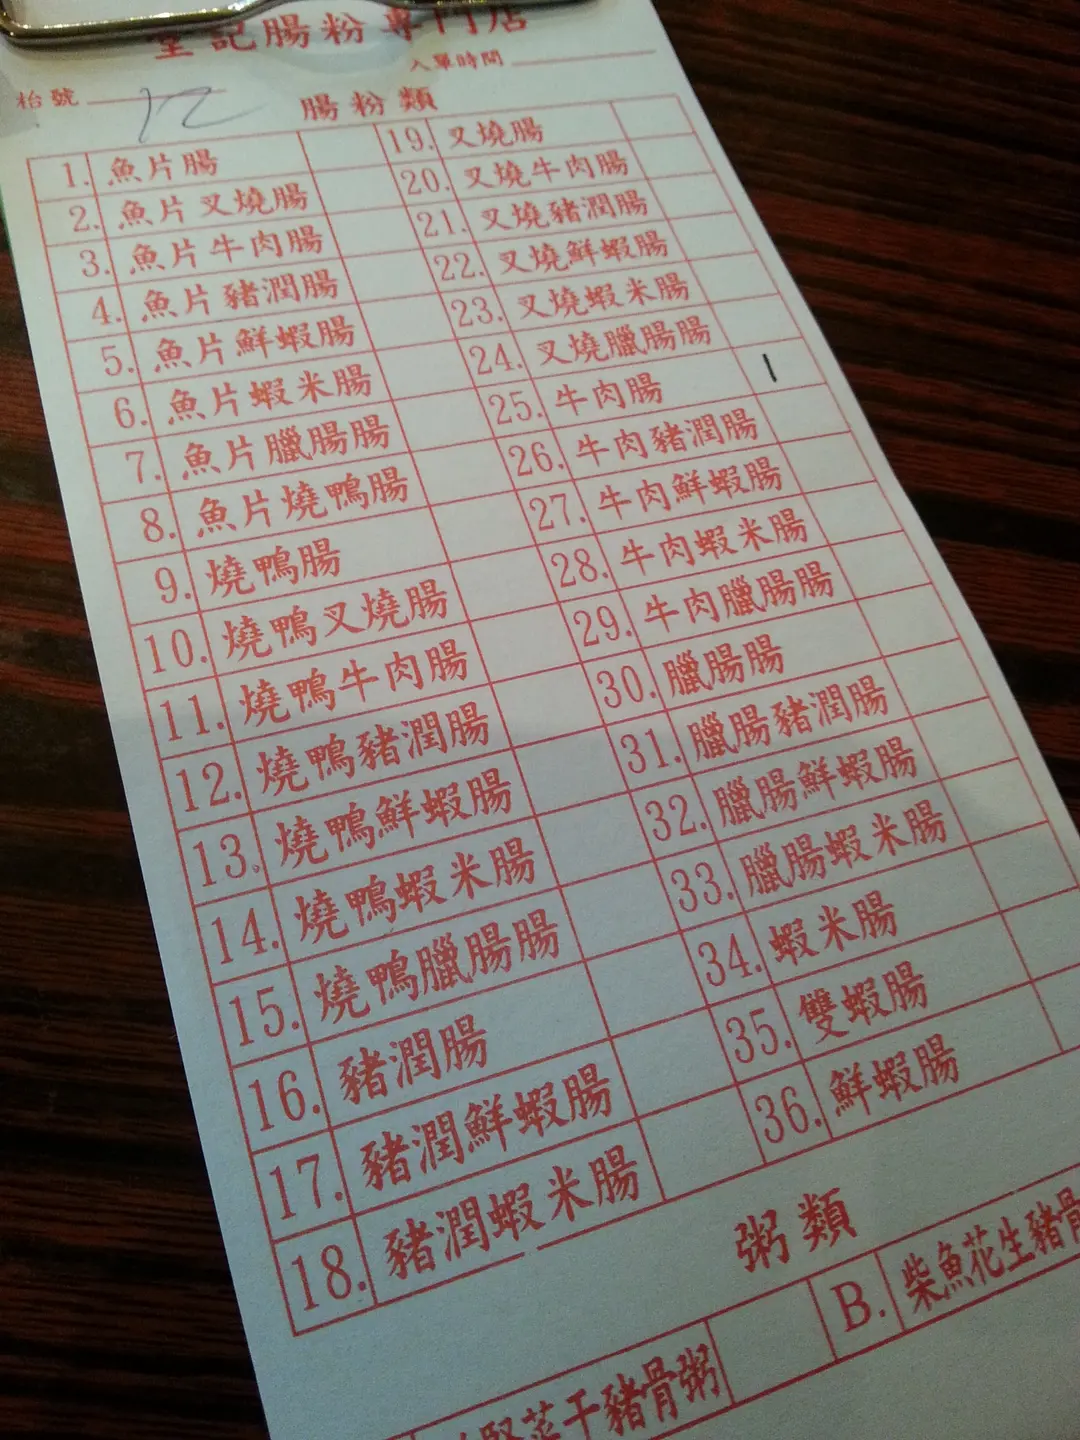 記腸粉專門店
入單時間
枱號 12
腸粉類
1. 魚片腸
2. 魚片叉燒腸
3. 魚片牛肉腸
4. 魚片豬潤腸
5. 魚片鮮蝦腸
6. 魚片蝦米腸
7. 魚片臘腸腸
8. 魚片燒鴨腸
9. 燒鴨腸
10. 燒鴨叉燒腸
11. 燒鴨牛肉腸
12. 燒鴨豬潤腸
13. 燒鴨鮮蝦腸
14. 燒鴨蝦米腸
15. 燒鴨臘腸腸
16. 豬潤腸
17. 豬潤鮮蝦腸
18. 豬潤蝦米腸
19. 叉燒腸
20. 叉燒牛肉腸
21. 叉燒豬潤腸
22. 叉燒鮮蝦腸
23. 叉燒蝦米腸
24. 叉燒臘腸腸
25. 牛肉腸 1
26. 牛肉豬潤腸
27. 牛肉鮮蝦腸
28. 牛肉蝦米腸
29. 牛肉臘腸腸
30. 臘腸腸
31. 臘腸豬潤腸
32. 臘腸鮮蝦腸
33. 臘腸蝦米腸
34. 蝦米腸
35. 雙蝦腸
36. 鮮蝦腸
粥類
菜干豬骨粥
B. 柴魚花生豬骨